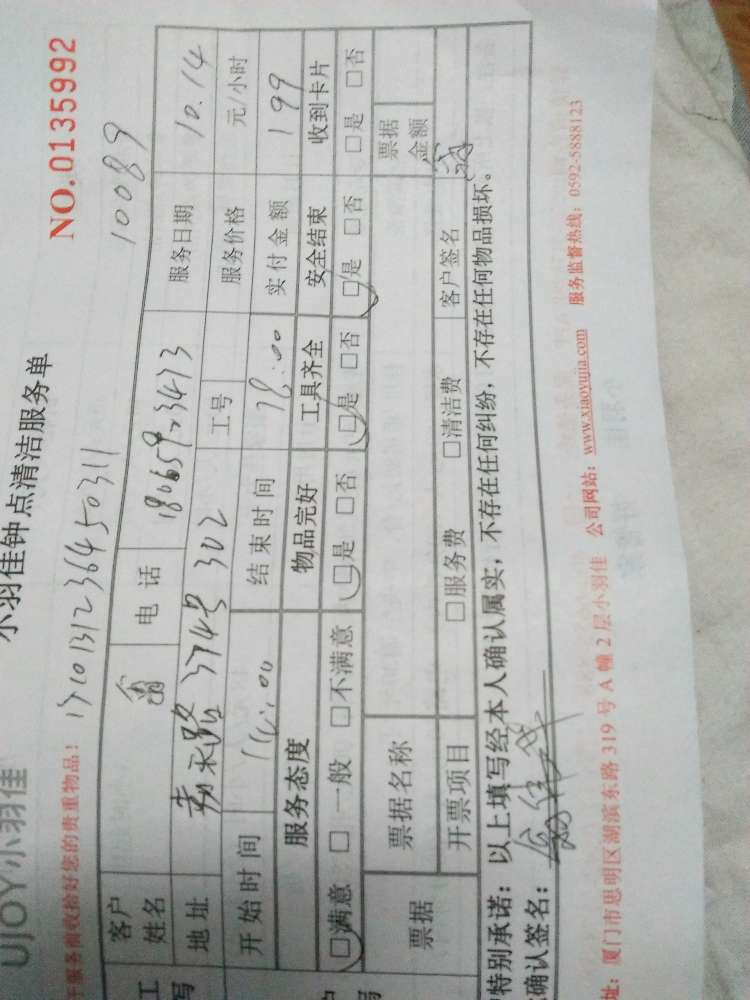 UJOY小羽佳
小羽佳钟点清洁服务单
NO.0135992
服务前收拾好您的贵重物品!
10089
客户姓名 电话 服务日期 10.14
地址 302 工号 服务价格 元/小时
开始时间 结束时间 18:00 实付金额 199
服务态度 物品完好 工具齐全 安全结束 收到卡片
□满意 □一般 □不满意 □是 □否 □是 □否 □是 □否 □是 □否
票据 票据名称 票据金额
开票项目 □服务费 □清洁费 客户签名
特别承诺:以上填写经本人确认属实,不存在任何纠纷,不存在任何物品损坏。
确认签名:
址:厦门市思明区湖滨东路 319 号 A 幢 2 层小羽佳 公司网站:www.xiaoyujia.com 服务监督热线:0592-5888123